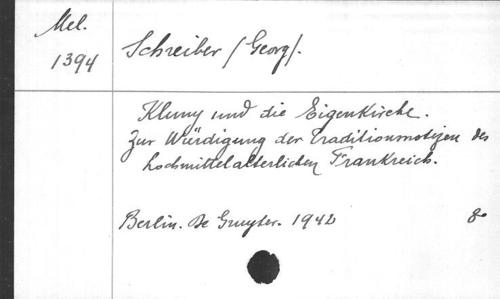 Mel.
1394
Schreiber (Georg).
Kluny und die Eigenkirche.
Zur Würdigung der Traditionsnotizen des
hochmittelalterlichen Frankreich.
Berlin. De Gruyter. 1942 8º